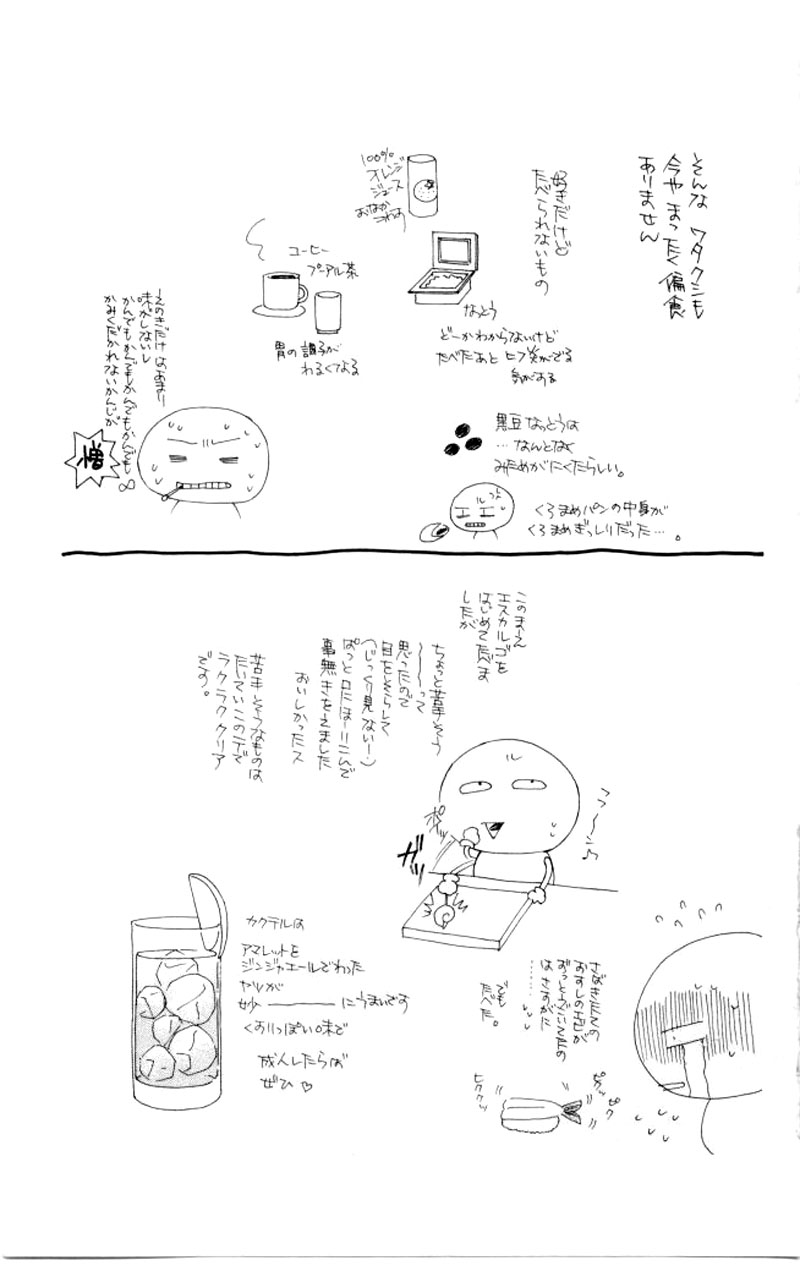 そんな ワタクシも
今や まったく偏食
ありません
好きだけど
たべられないもの
100%
オレンジ
ジュース
おなか
こわす
なっとう
どーかわからないけど
たべたあと ヒフ炎がでる
気がある
コーヒー
プーアル茶
胃の調子が
わるくなる
黒豆なっとうは
…なんとなく
みためがにくたらしい。
くろまめパンの中身が
くろまめぎっしりだった…。
〜えのきだけ はあまり〜
味がしないし
かんでもかんでもかんでもかんでも
かみくだかれないかんじが
憎
このまーえ
エスカルゴを
はじめてたべま
したが
ちょっと苦手そう
〜〜〜って
思ったので
目をそらして
(じっくり見ない〜)
ぱっと口にほーりこんで
事無きをえました
おいしかったス
苦手そうなものは
たいていこの手で
ラクラククリア
です。
フフ〜〜ン♪
ポイッ
ガッ
さばきたての
おすしのエビが
おっとうごいてたの
は さすがに
………
でも
たべた。
ピクッ
ピク
ヒククッ
カクテルは
アマレットを
ジンジャエールでわった
ヤツが
妙―――にうまいです
くすりっぽい味で
成人したらば
ぜひ♡